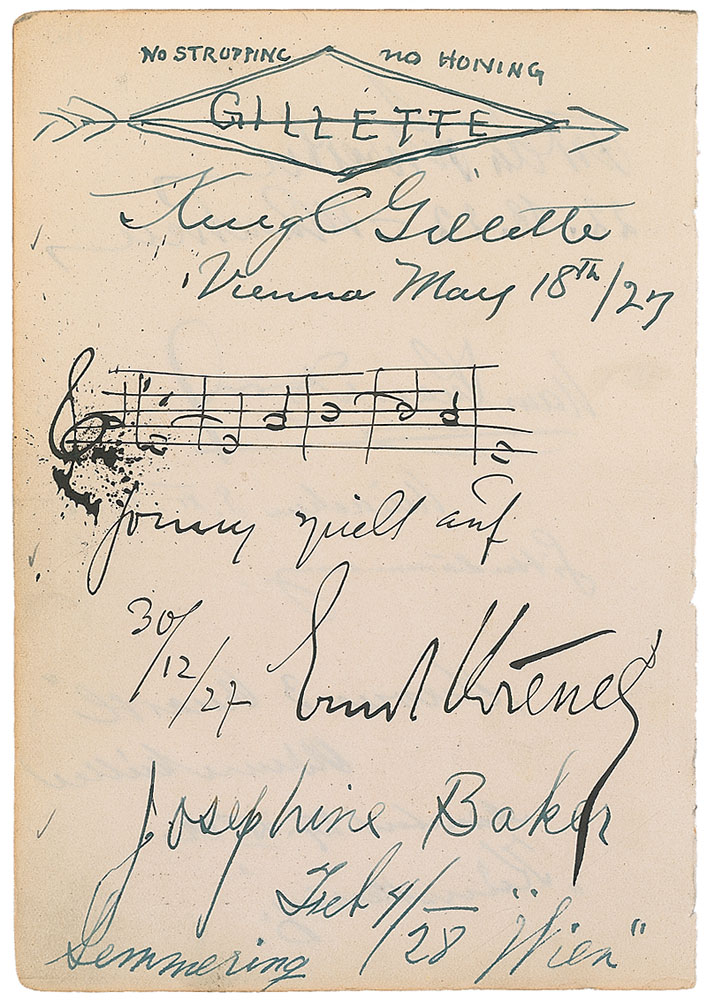 NO STROPPING NO HONING
GILLETTE
King C Gillette
Vienna May 18th/27
Jonny spielt auf
30/12/27 Ernst Křenek
Josephine Baker
Feb 4/28 "Wien"
Semmering